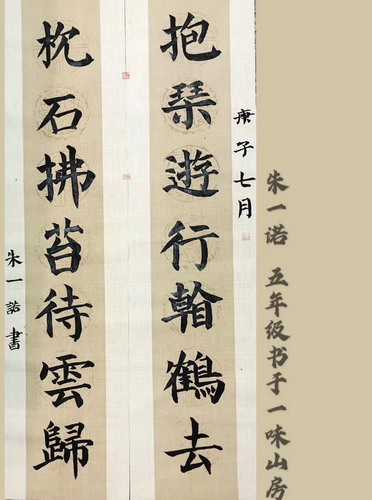 朱一诺 五年级书于一味山房
庚子七月
抱琴遊行翰鶴去
枕石拂苔待雲歸
朱一諾書